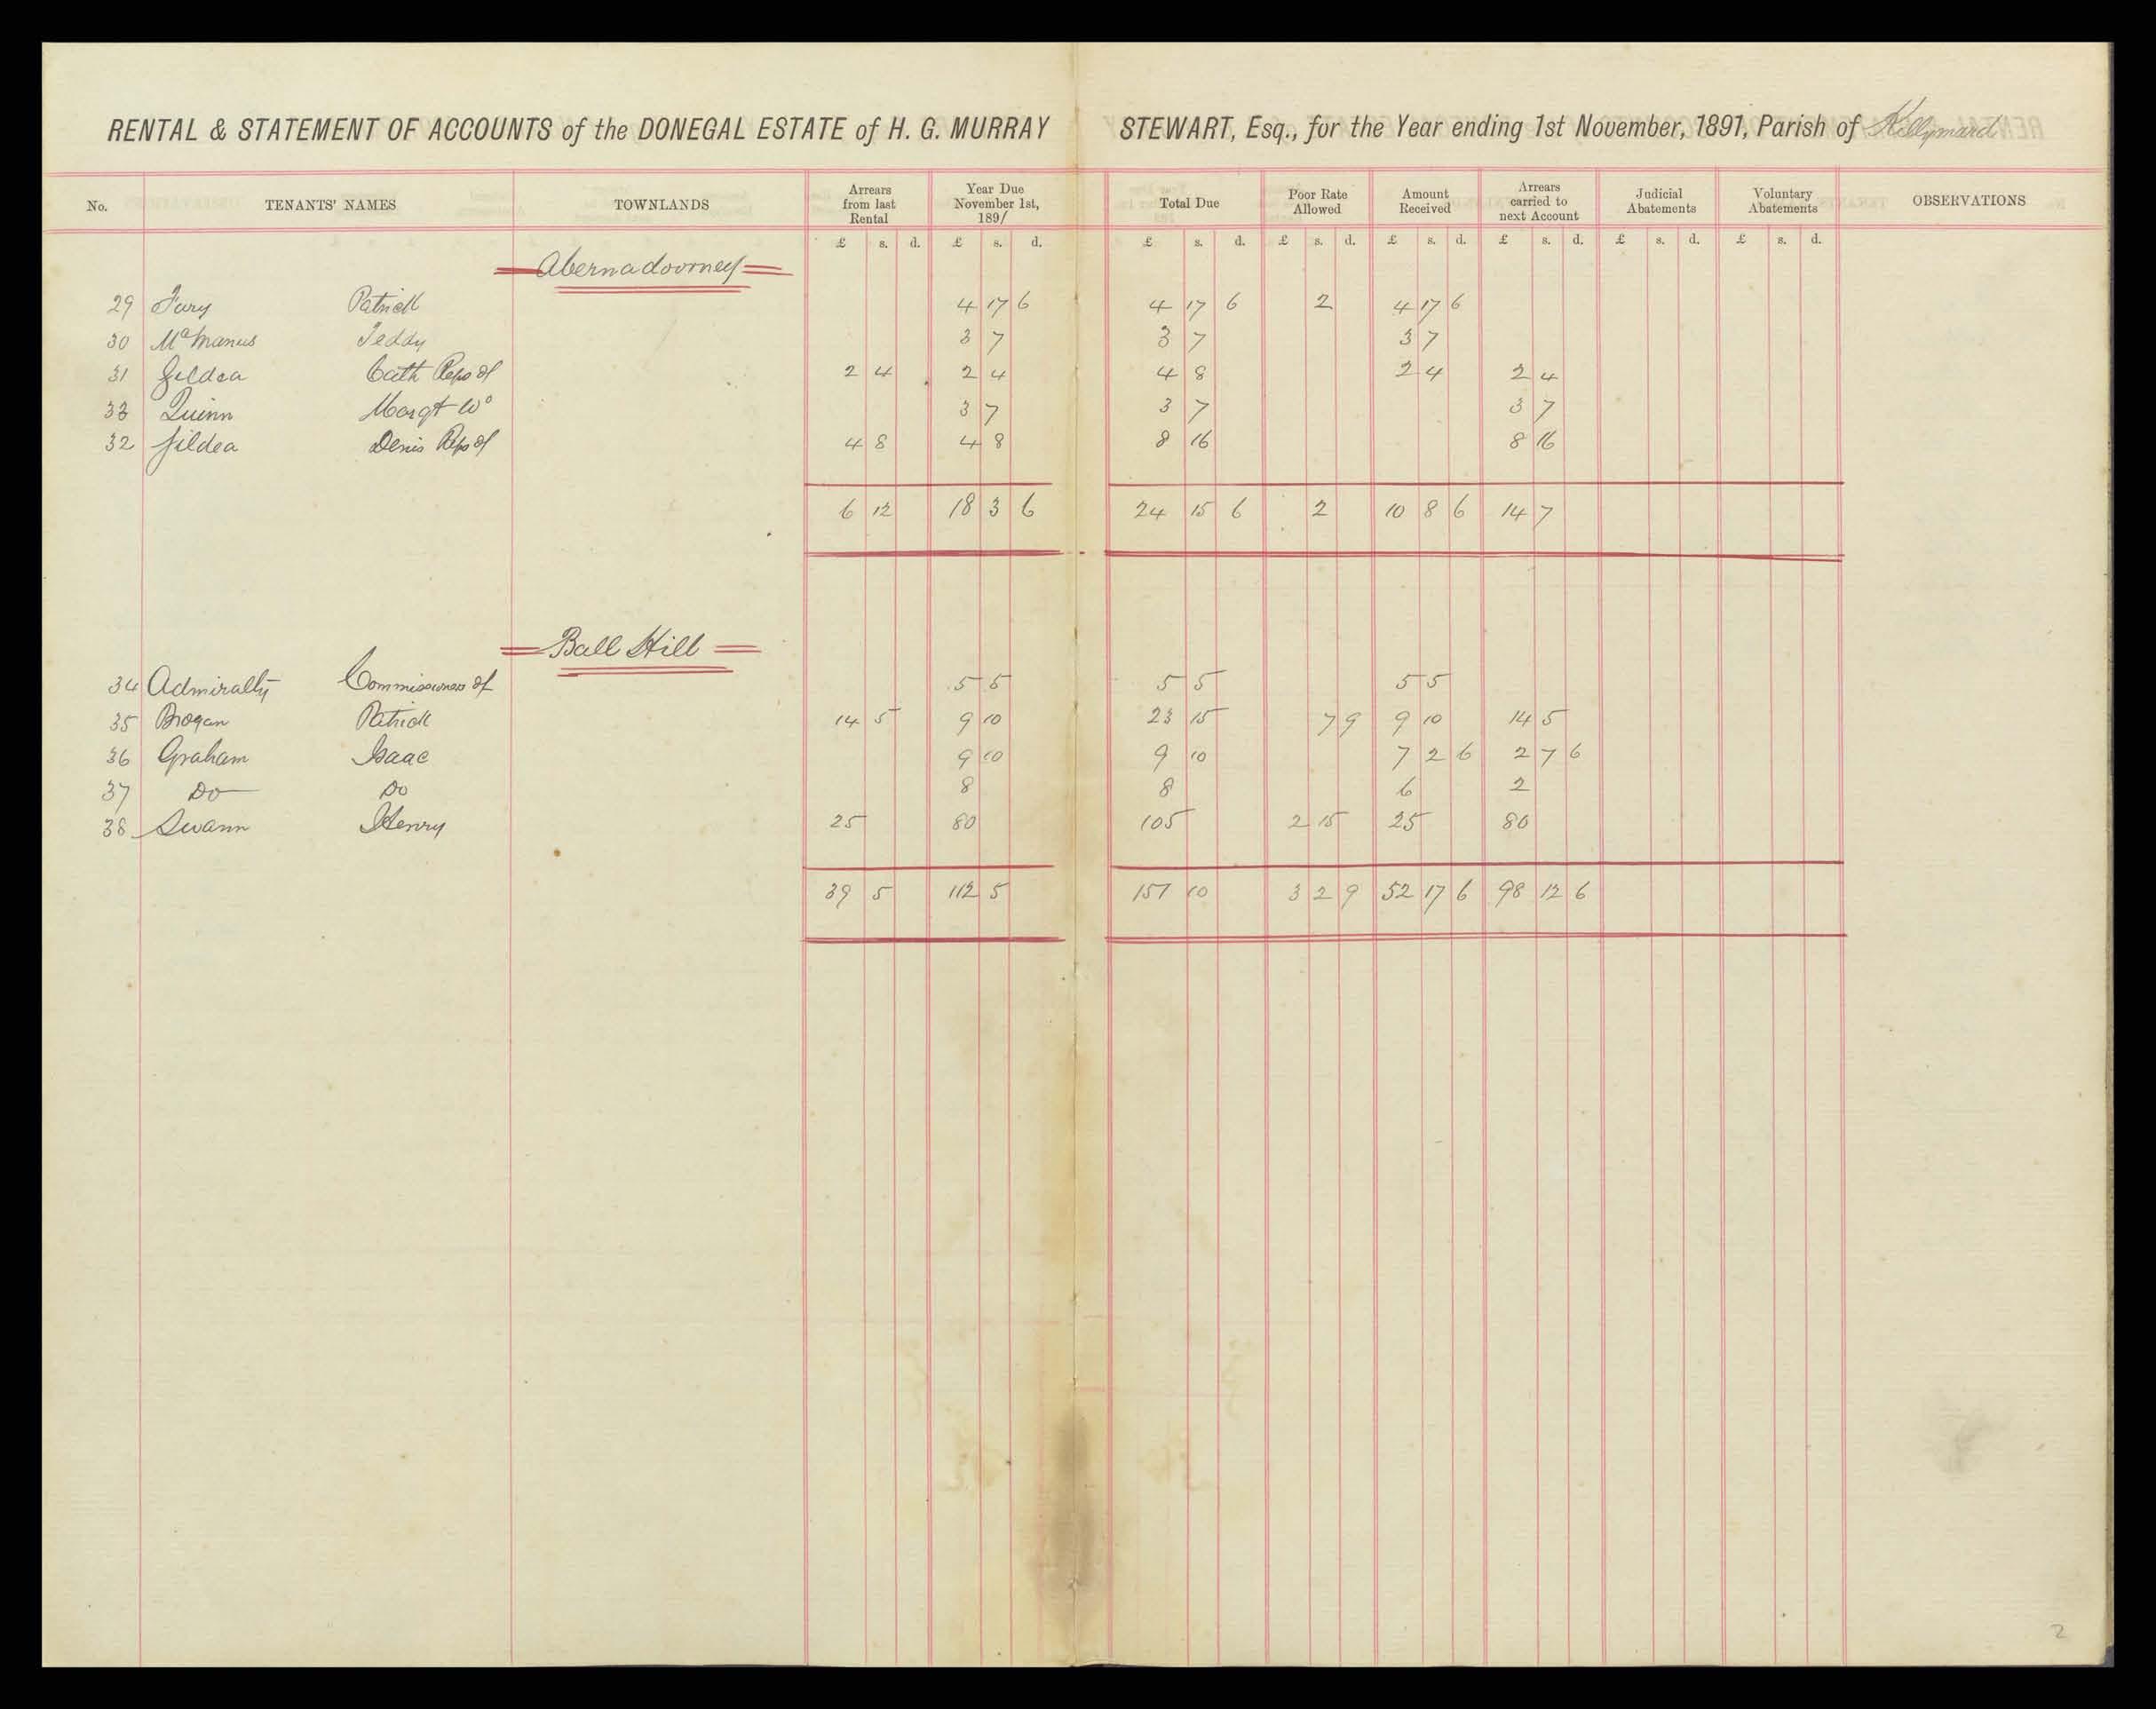 RENTAL & STATEMENT OF ACCOUNTS of the DONEGAL ESTATE of H. G. MURRAY STEWART, Esq., for the Year ending 1st November, 1891, Parish of Killymard
No. TENANTS' NAMES TOWNLANDS Arrears from last Rental Year Due November 1st, 1891 Total Due Poor Rate Allowed Amount Received Arrears carried to next Account Judicial Abatements Voluntary Abatements OBSERVATIONS
£ s. d. £ s. d. £ s. d. £ s. d. £ s. d. £ s. d. £ s. d. £ s. d.
Abernadoorney
29 Fury Patrick 4 17 6 4 17 6 2 4 17 6
30 McManus Teddy 3 7 3 7 3 7
31 Gildea Cath Reps of 2 4 2 4 4 8 2 4 2 4
33 Quinn Margt Wo 3 7 3 7 3 7
32 Gildea Denis Reps of 4 8 4 8 8 16 8 16
6 12 18 3 6 24 15 6 2 10 8 6 14 7
Ball Hill
34 Admiralty Commissioners of 5 5 5 5 5 5
35 Brogan Patrick 14 5 9 10 23 15 7 9 9 10 14 5
36 Graham Isaac 9 10 9 10 7 2 6 2 7 6
37 Do Do 8 8 6 2
38 Swann Henry 25 80 105 2 15 25 80
39 5 112 5 151 10 3 2 9 52 17 6 98 12 6
2